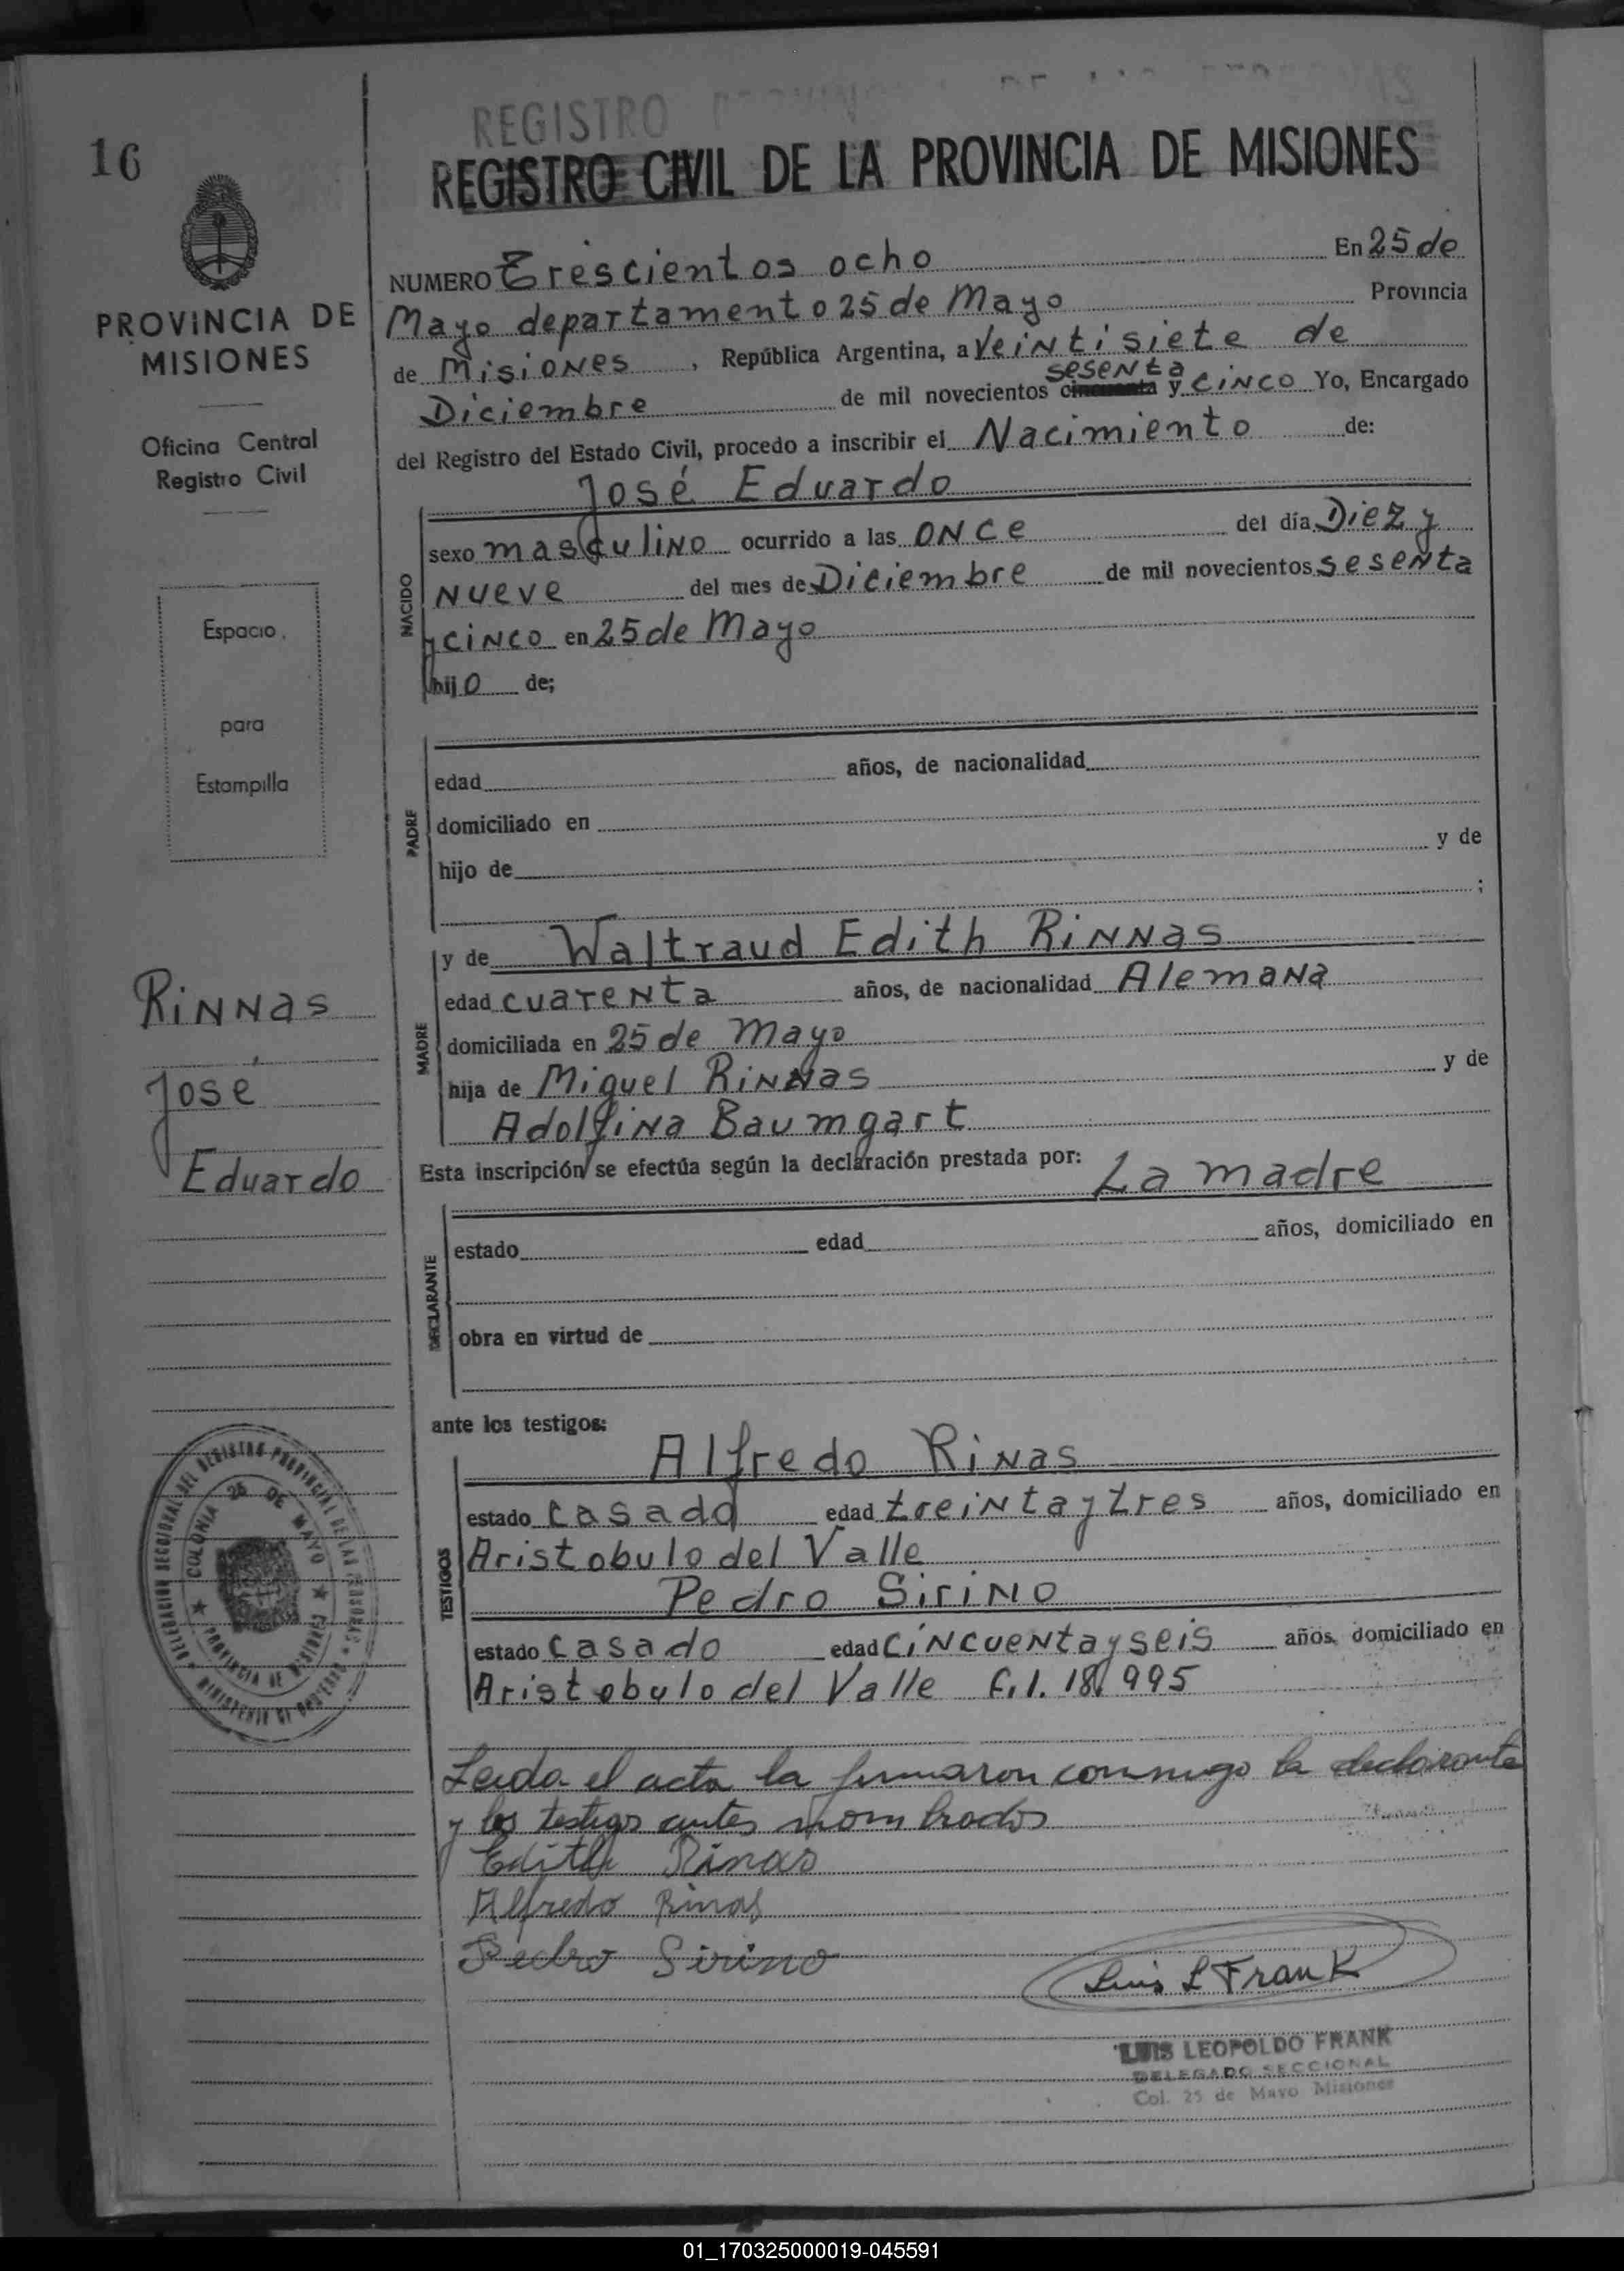 16
REGISTRO
REGISTRO CIVIL DE LA PROVINCIA DE MISIONES
PROVINCIA DE
MISIONES
Oficina Central
Registro Civil
Espacio
para
Estampilla
Rinnas
José
Eduardo
NUMERO Trescientos ocho En 25 de
Mayo departamento 25 de Mayo Provincia
de Misiones, República Argentina, a Veintisiete de
sesenta
Diciembre de mil novecientos cincuenta y cinco Yo, Encargado
del Registro del Estado Civil, procedo a inscribir el Nacimiento de:
José Eduardo
NACIDO
sexo masculino ocurrido a las once del día Diez y
nueve del mes de Diciembre de mil novecientos sesenta
y cinco en 25 de Mayo
hijo de;
PADRE
edad años, de nacionalidad
domiciliado en
hijo de y de
;
MADRE
y de Waltraud Edith Rinnas
edad cuarenta años, de nacionalidad Alemana
domiciliada en 25 de Mayo
hija de Miguel Rinnas y de
Adolfina Baumgart
Esta inscripción se efectúa según la declaración prestada por: La madre
DECLARANTE
estado edad años, domiciliado en
obra en virtud de
ante los testigos:
TESTIGOS
Alfredo Rinas
estado casado edad treinta y tres años, domiciliado en
Aristobulo del Valle
Pedro Sirino
estado casado edad cincuenta y seis años, domiciliado en
Aristobulo del Valle C.I. 18 995
Leida el acta la firmaron conmigo la declarante
y los testigos antes nombrados
Edith Rinas
Alfredo Rinas
Pedro Sirino
Luis L Frank
LUIS LEOPOLDO FRANK
DELEGADO SECCIONAL
Col. 25 de Mayo Misiones
DELEGACION SECCIONAL DEL REGISTRO PROVINCIAL DE LAS PERSONAS
MINISTERIO DE GOBIERNO
COLONIA 25 DE MAYO
PROVINCIA DE MISIONES
01_170325000019-045591